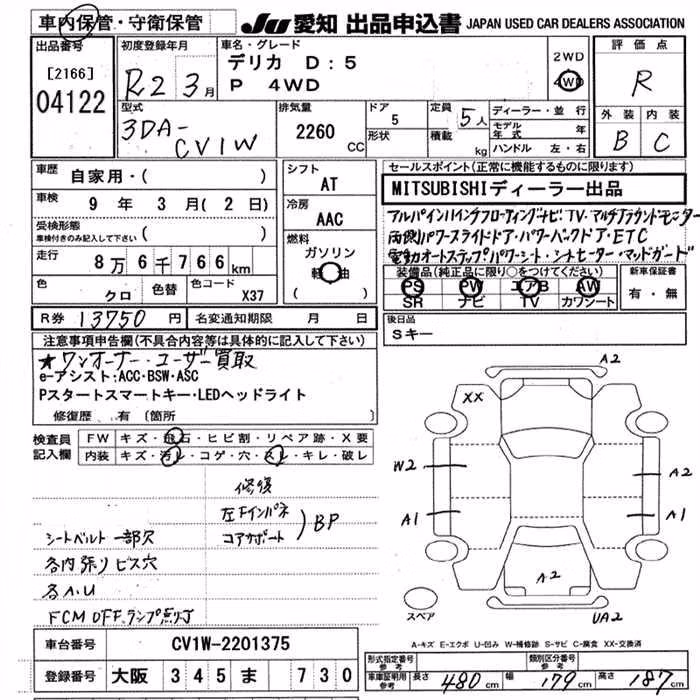 車内保管・守衛保管 JU 愛知 出品申込書 JAPAN USED CAR DEALERS ASSOCIATION
出品番号 初度登録年月 車名・グレード 評価点
[2166] デリカ D:5 2WD
04122 R2 3月 P 4WD 4WD R
型式 排気量 ドア 定員 ディーラー・並行 外装 内装
3DA-CV1W 2260 CC 5 5人 モデル年式 年 B C
形状 積載 kg ハンドル 左・右
車歴 自家用・( ) シフト AT セールスポイント(正常に機能するものに限ります)
車検 9年3月(2日) 冷房 AAC MITSUBISHIディーラー出品
受検形態 車検付きのみ記入して下さい ( ) 燃料 アルパイン11インチフローティングナビ・TV・マルチアラウンドモニター
走行 8万6千766km ガソリン 両側パワースライドドア・パワーバックドア・ETC
色 クロ 色替 色コード X37 (軽油) 電動オートステップ・パワーシート・シートヒーター・マッドガード
装備品(純正品に限り○をつけてください) 新車保証書
PS PW エアB AW 有・無
SR ナビ TV カワシート
R券 13750円 名変通知期限 月 日 後日品
Sキー
注意事項申告欄(不具合内容等は具体的に記入して下さい)
★ワンオーナー・ユーザー買取
e-アシスト:ACC・BSW・ASC
Pスタートスマートキー・LEDヘッドライト
修復歴 有 〔箇所 〕
検査員記入欄 FW キズ・飛石・ヒビ割・リペア跡・X要
内装 キズ・汚レ・コゲ・穴・スレ・キレ・破レ
修復
左Fインパネ
コアサポート )BP
シートベルト一部欠
各内張りビス穴
各A.U
FCM OFF ランプ点灯
A2
XX
W2 A2
A1 A1
A2
スペア UA2
A-キズ E-エクボ U-凹み W-補修跡 S-サビ C-腐食 XX-交換済
車台番号 CV1W-2201375
登録番号 大阪 345 ま 730
形式指定番号 参考 類別区分番号 参考
車庫証明用 参考 長さ 480cm 幅 179cm 高さ 187cm